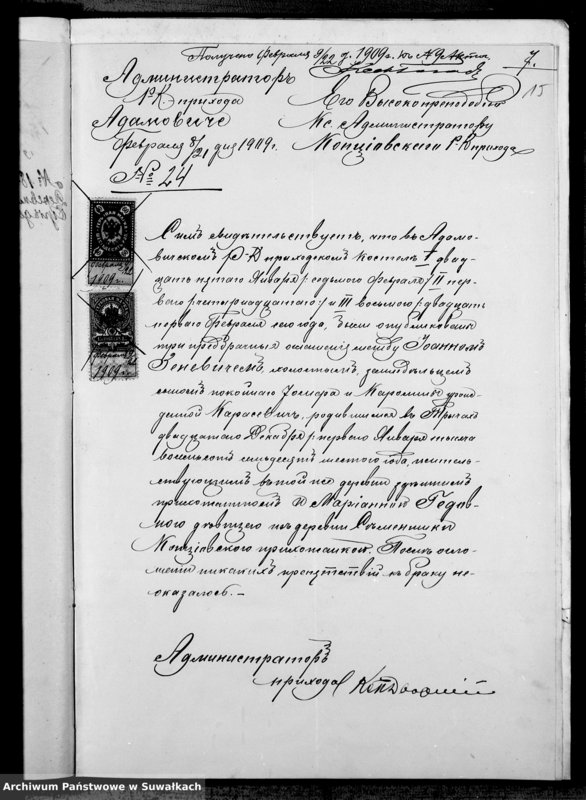 Получено Февраля 9/22 д. 1909 г. къ № 7 Акта
7.
15
Администраторъ
Р.К. прихода
Адамовиче
Февраля 8/21 дня 1909 г.
№ 24
Его Высокопреподобію
Кс. Администратору
Копціовскаго Р. К. прихода
1909 г.
1909 г.
Симъ свидѣтельствуетъ, что въ Адамо-
вическомъ Р-К приходскомъ костелѣ I двад-
цать пятаго Января /: седьмого Февраля :/ II пер-
ваго /: четырнадцатаго :/ и III восьмого /: двадцать
перваго :/ Февраля сего года, были опубликованы
три предбрачныя оглашенія между Іоанномъ
Зеневичемъ, холостымъ, земледѣльцемъ
сыномъ покойнаго и Каролины урож-
денной Карасевичъ, родившимся въ
двадцатаго Декабря /: перваго Января тысяча
восемьсотъ семьдесятъ шестого года, житель-
ствующимъ въ той же деревни здѣшнимъ
прихожаниномъ и Маріанной
дѣвицею изъ деревни
Копціовской прихожанкой. Послѣ огла-
шеній никакихъ препятствій къ браку не-
оказалось. –
Администраторъ
прихода
Archiwum Państwowe w Suwałkach